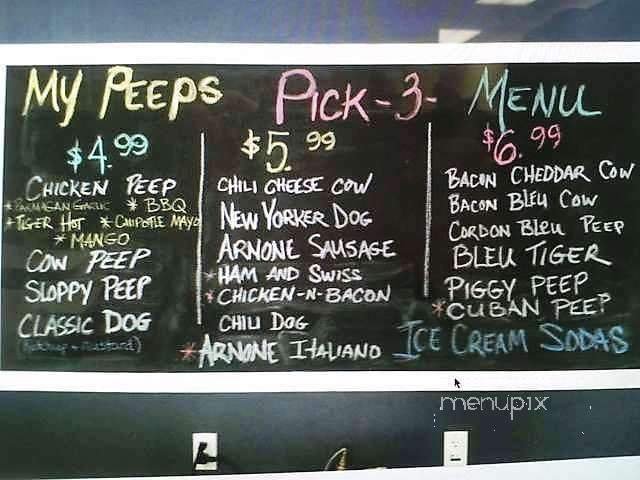 My Peeps Pick-3- Menu
$4.99
Chicken Peep
*Parmasan Garlic * BBQ
*Tiger Hot * Chipotle Mayo
* Mango
Cow Peep
Sloppy Peep
Classic Dog
(Ketchup & Mustard)
$5.99
Chili Cheese Cow
New Yorker Dog
Arnone Sausage
*Ham and Swiss
*Chicken-N-Bacon
Chili Dog
*Arnone Italiano
$6.99
Bacon Cheddar Cow
Bacon Bleu Cow
Cordon Bleu Peep
Bleu Tiger
Piggy Peep
*Cuban Peep
Ice Cream Sodas
menupix